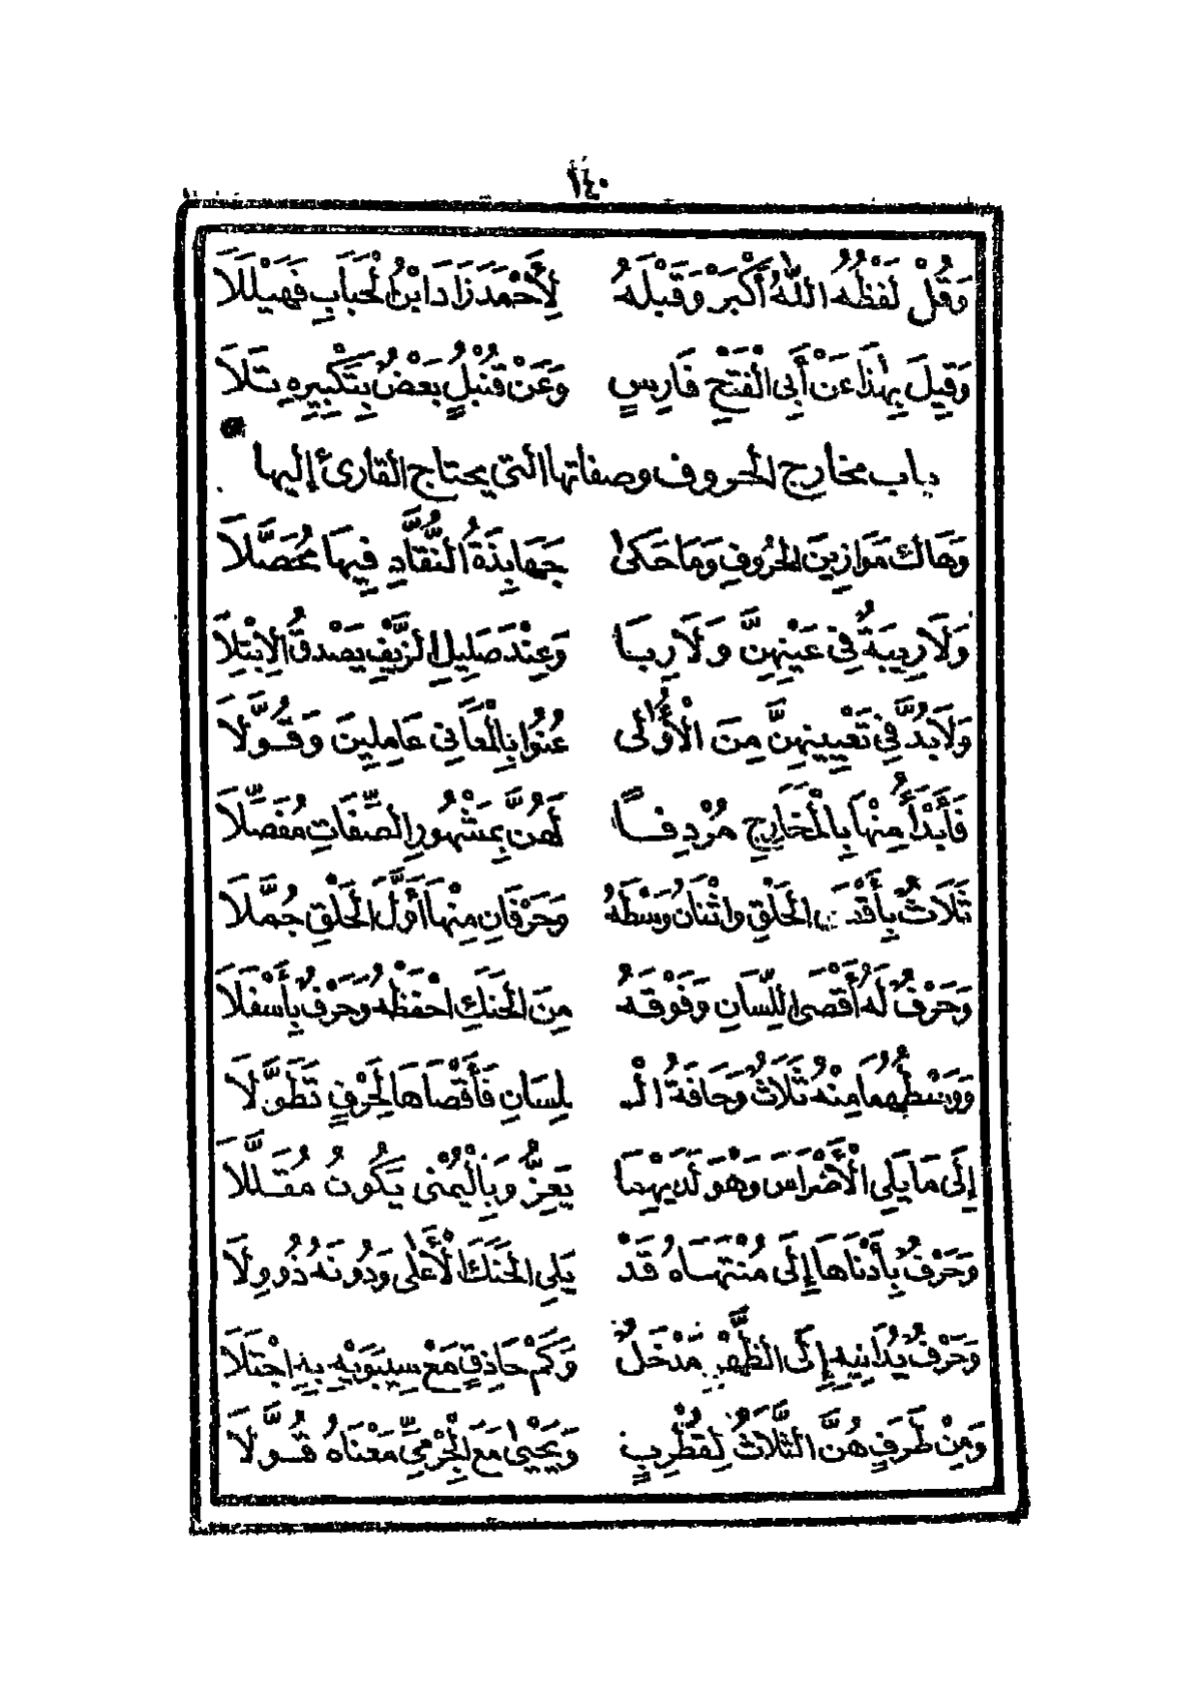 ١٤٠
وَقُلْ لَفْظُهُ اللهُ أَكْبَرْ وَقَبْلَهُ لِأَحْمَدَ زَادَ ابْنُ الْحُبَابِ فَهَيْلَلَا
وَقِيلَ بِهٰذَا عَنْ أَبِي الْفَتْحِ فَارِسٍ وَعَنْ قُنْبُلٍ بَعْضٌ بِتَكْبِيرِهِ تَلَا
باب مخارج الحروف وصفاتها التى يحتاج القارئ إليها
وَهَاكَ مَوَازِينَ الْحُرُوفِ وَمَا حَكَى جَهَابِذَةُ النُّقَّادِ فِيهَا مُحَصَّلَا
وَلَا رِيبَةٌ فِي عَيْنِهِنَّ وَلَا رِبَا وَعِنْدَ صَلِيلِ الزَّيْفِ يَصْدُقُ الِابْتِلَا
وَلَابُدَّ فِي تَعْيِينِهِنَّ مِنَ الْأُولَى عُنُوا بِالْمَعَانِي عَامِلِينَ وَقُوَّلَا
فَأَبْدَأُ مِنْهَا بِالْمَخَارِجِ مُرْدِفًا لَهُنَّ بِمَشْهُورِ الصِّفَاتِ مُفَصِّلَا
ثَلَاثٌ بِأَقْصَى الْحَلْقِ وَاثْنَانِ وَسْطَهُ وَحَرْفَانِ مِنْهَا أَوَّلَ الْحَلْقِ جُمِّلَا
وَحَرْفٌ لَهُ أَقْصَى اللِّسَانِ وَفَوْقَهُ مِنَ الْحَنَكِ احْفَظْهُ وَحَرْفٌ بِأَسْفَلَا
وَوَسْطُهُمَا مِنْهُ ثَلَاثٌ وَحَافَةُ الْـ لِسَانِ فَأَقْصَاهَا لِحَرْفٍ تَطَوَّلَا
إِلَى مَا يَلِي الْأَضْرَاسَ وَهْوَ لَدَيْهِمَا يَعِزُّ وَبِالْيُمْنَى يَكُونُ مُقَلَّلَا
وَحَرْفٌ بِأَدْنَاهَا إِلَى مُنْتَهَاهُ قَدْ يَلِي الْحَنَكَ الْأَعْلَى وَدُونَهُ ذُو وِلَا
وَحَرْفٌ يُدَانِيهِ إِلَى الظَّهْرِ مَدْخَلٌ وَكَمْ حَاذِقٍ مَعْ سِيبَوَيْهِ بِهِ اجْتَلَا
وَمِنْ طَرَفٍ هُنَّ الثَّلَاثُ لِقُطْرُبٍ وَيَحْيَى مَعَ الْجَرْمِيِّ مَعْنَاهُ قُوِّلَا